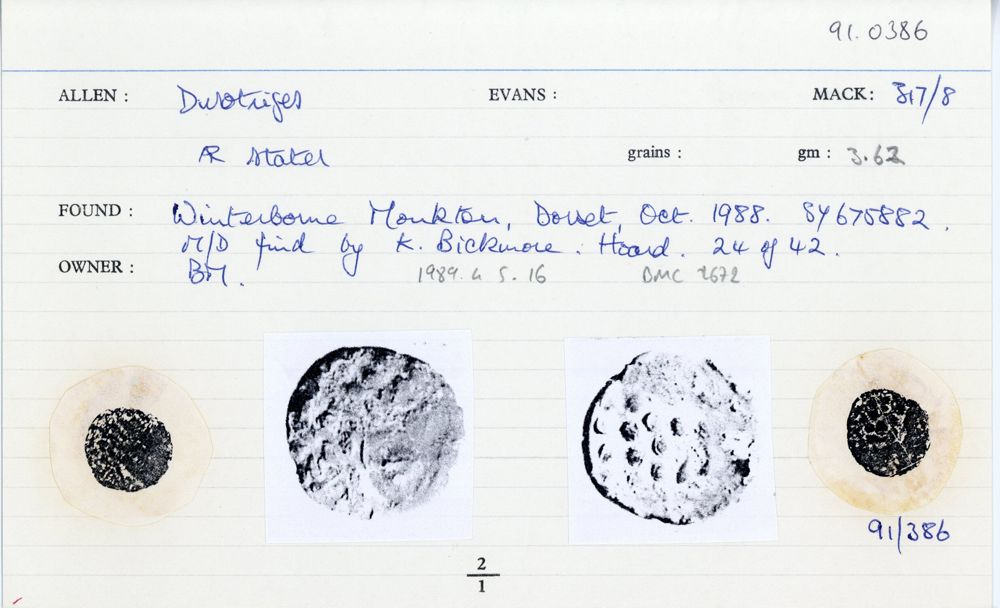 91.0386
ALLEN : Durotriges EVANS : MACK : 317/8
AR Stater grains : gm : 3.62
FOUND : Winterborne Monkton, Dorset, Oct. 1988. SY675882.
M/D find by K. Bickmore. Hoard. 24 of 42.
OWNER : BM. 1989.4 5.16 BMC 2672
91/386
2
1